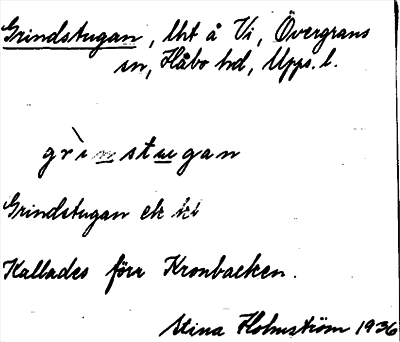 Grindstugan, lht å Vi, Övergrans
sn, Håbo hd, Upps. l.
grìnstugan
Grindstugan ek
Kallades förr Kronbacken.
Stina Holmström 1936